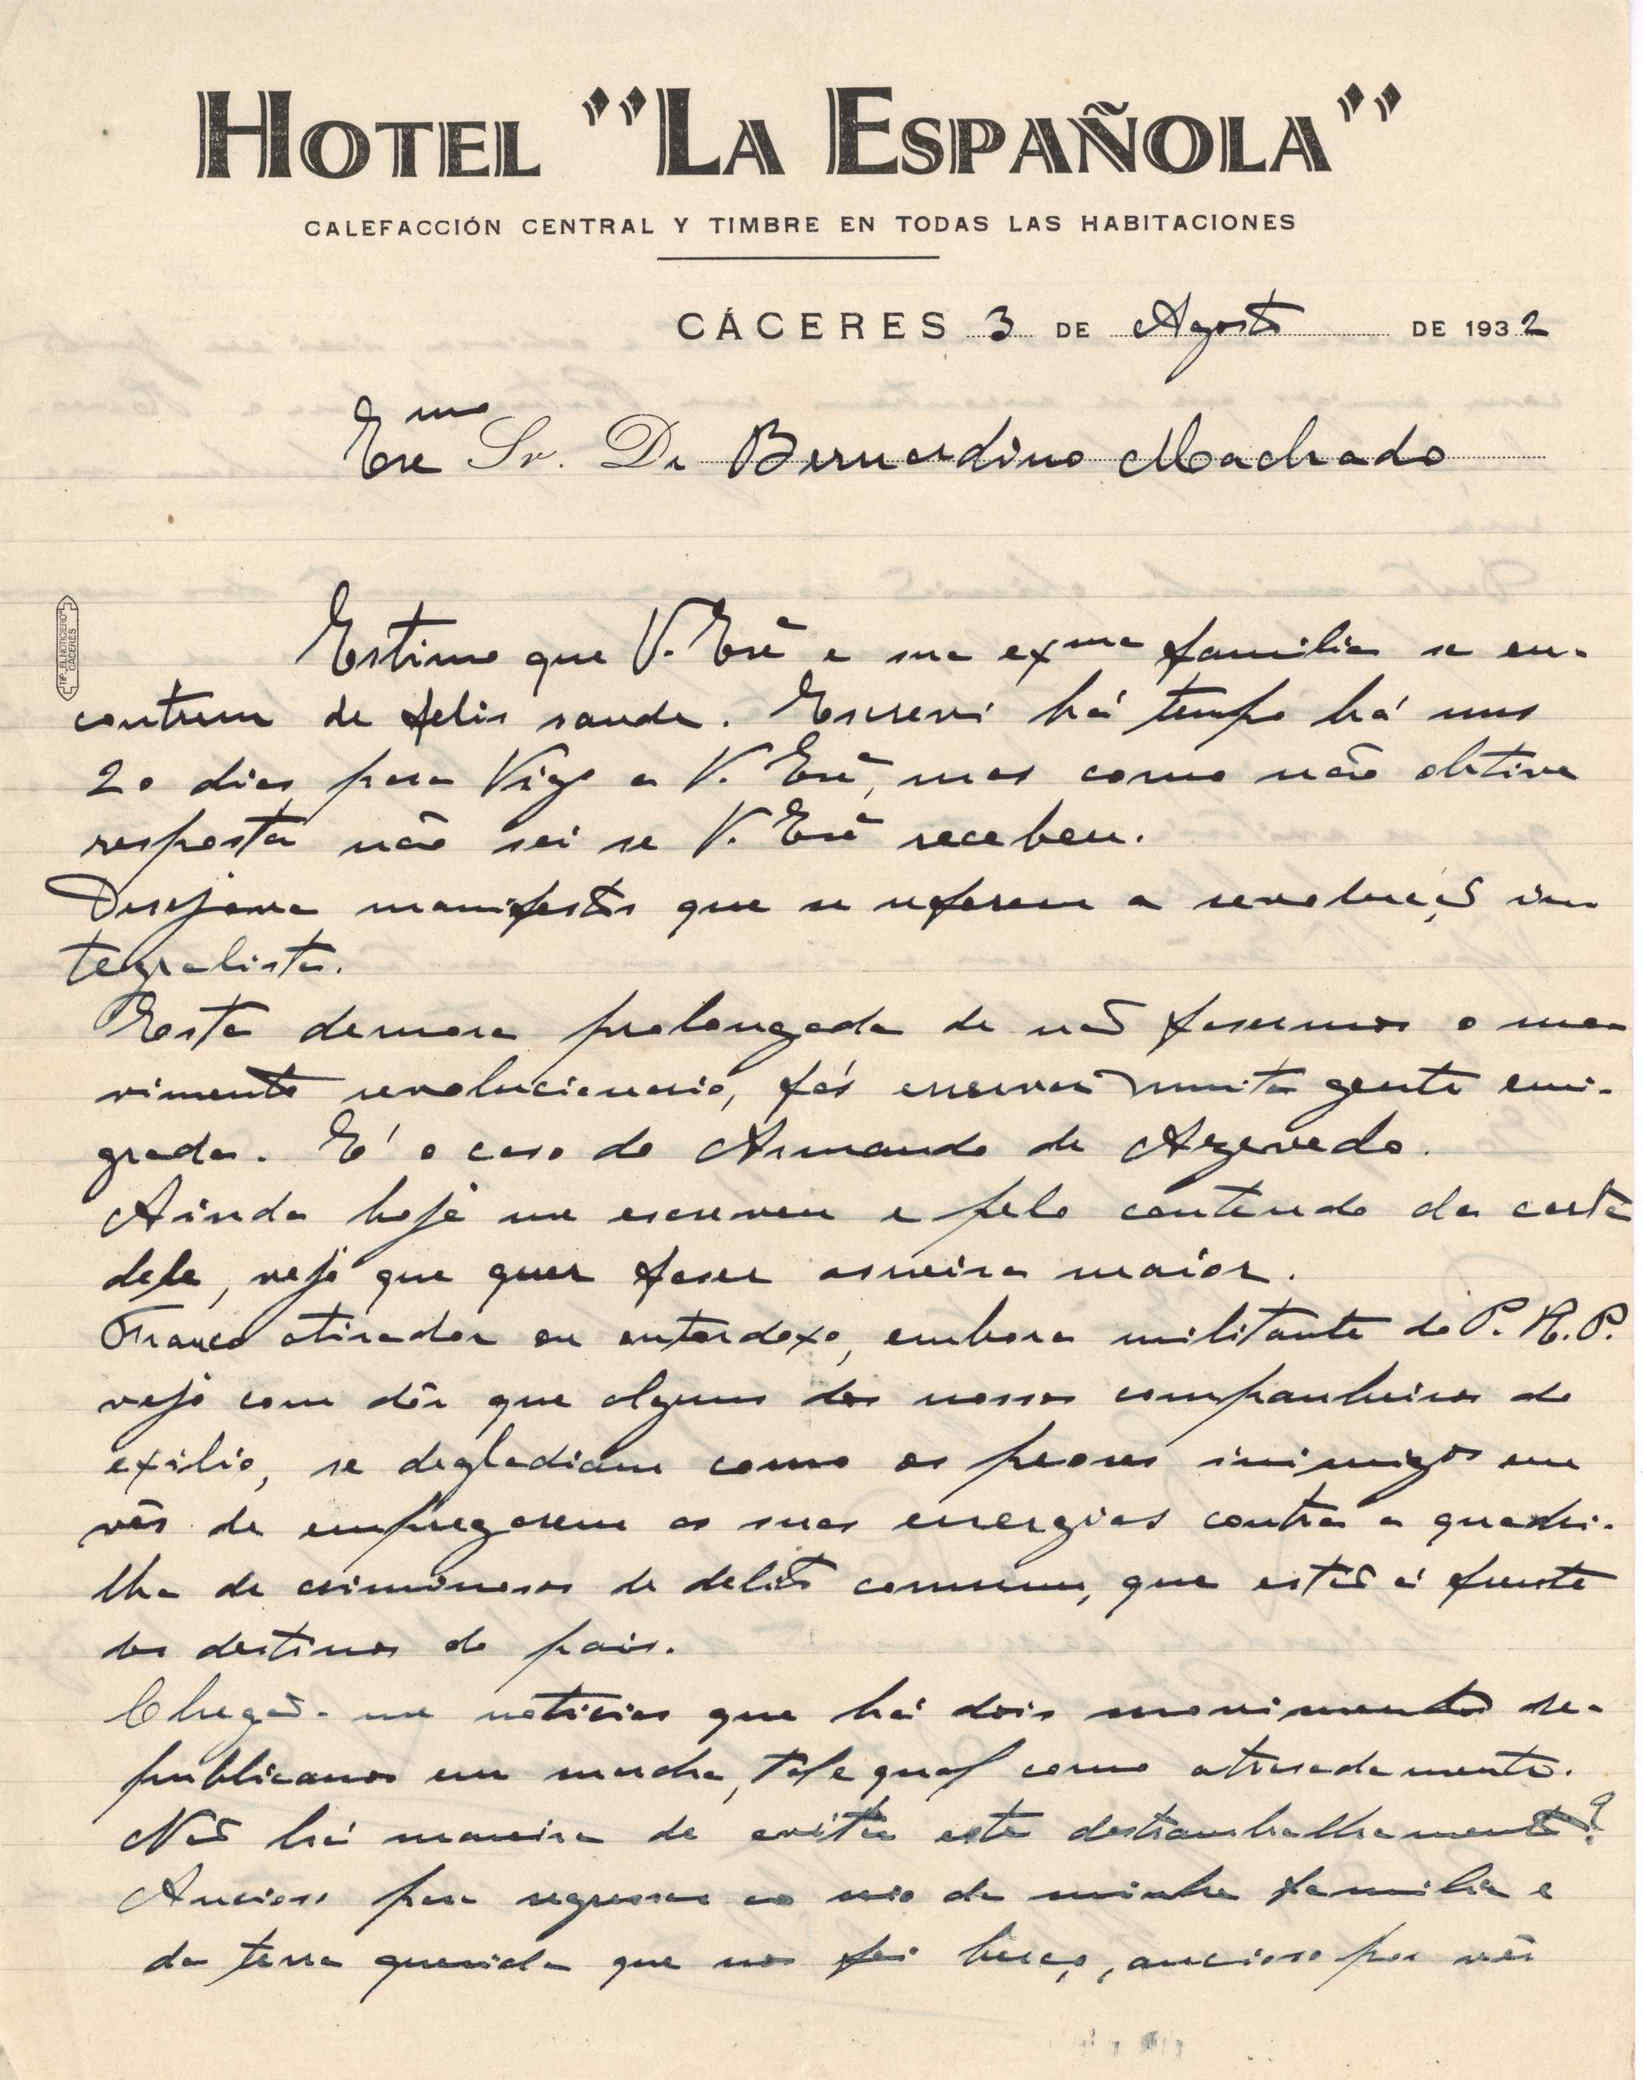 HOTEL "LA ESPAÑOLA"
CALEFACCIÓN CENTRAL Y TIMBRE EN TODAS LAS HABITACIONES
CÁCERES 3 DE Agosto DE 1932
Exmo Sr. Dr Bernardino Machado
Estimo que V. Exª e sua exma familia se en-
contrem de felis saude. Escrevi há tempo há uns
20 dias para Vigo a V. Exª, mas como não obtive
resposta não sei se V. Exª recebeu.
Desejava manifestos que se referem a revolução in
tegralista.
Esta demora prolongada de não fasermos o mo-
vimento revolucionario, fás enervar muita gente emi-
grada. E' o caso do Armando de Azevedo.
Ainda hoje me escreveu e pelo conteudo da carta
dele, vejo que quer faser asneira maior.
Franco atirador ou ortodoxo, embora militante do P. R. P.
vejo com dôr que alguns dos nossos companheiros do
exilio, se degladiam como os peores inimigos em
vês de empregarem as suas energias contra a quadri-
lha de criminosos de delito comum, que estão á frente
dos destinos do pais.
Chegão-me noticias que há dois movimentos re-
publicanos em marcha, tal e qual como atrasadamente.
Não há maneira de evitar este destrambelhamento?
Ancioso por regressar ao seio da minha familia e
da terra querida que nos foi berço, ancioso por vêr